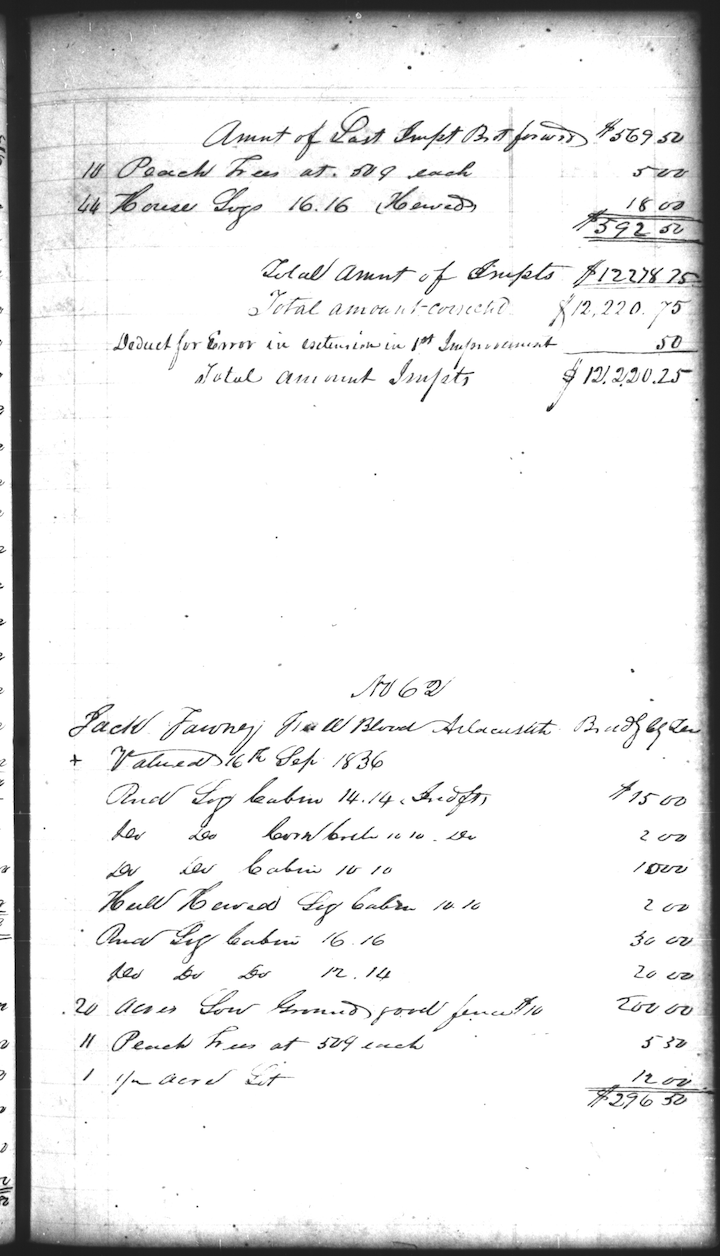 Amnt of Last Impt Brt forward $569 50
10 Peach Trees at 50¢ each 5 00
44 House Logs 16.16 Hewed 18 00
$592 50
Total Amnt of Impts $12278 75
Total amount corrected $12,220.75
Deduct for Error in extension in 1st Improvement 50
Total amount Impts $12,220.25
No 62
Jack Full Blood
+ Valued 16th Sep 1836
Rnd Log Cabin 14.14 Indft $15 00
Do Do Corn Crib 10 10 Do 2 00
Do Do Cabin 10 10 10 00
Hull Hewed Log Cabin 10.10 2 00
Rnd Log Cabin 16.16 30 00
Do Do Do 12.14 20 00
20 Acres Low Ground good fence $10 200 00
11 Peach Trees at 50¢ each 5 50
1 Acre Lot 12 00
$296 50